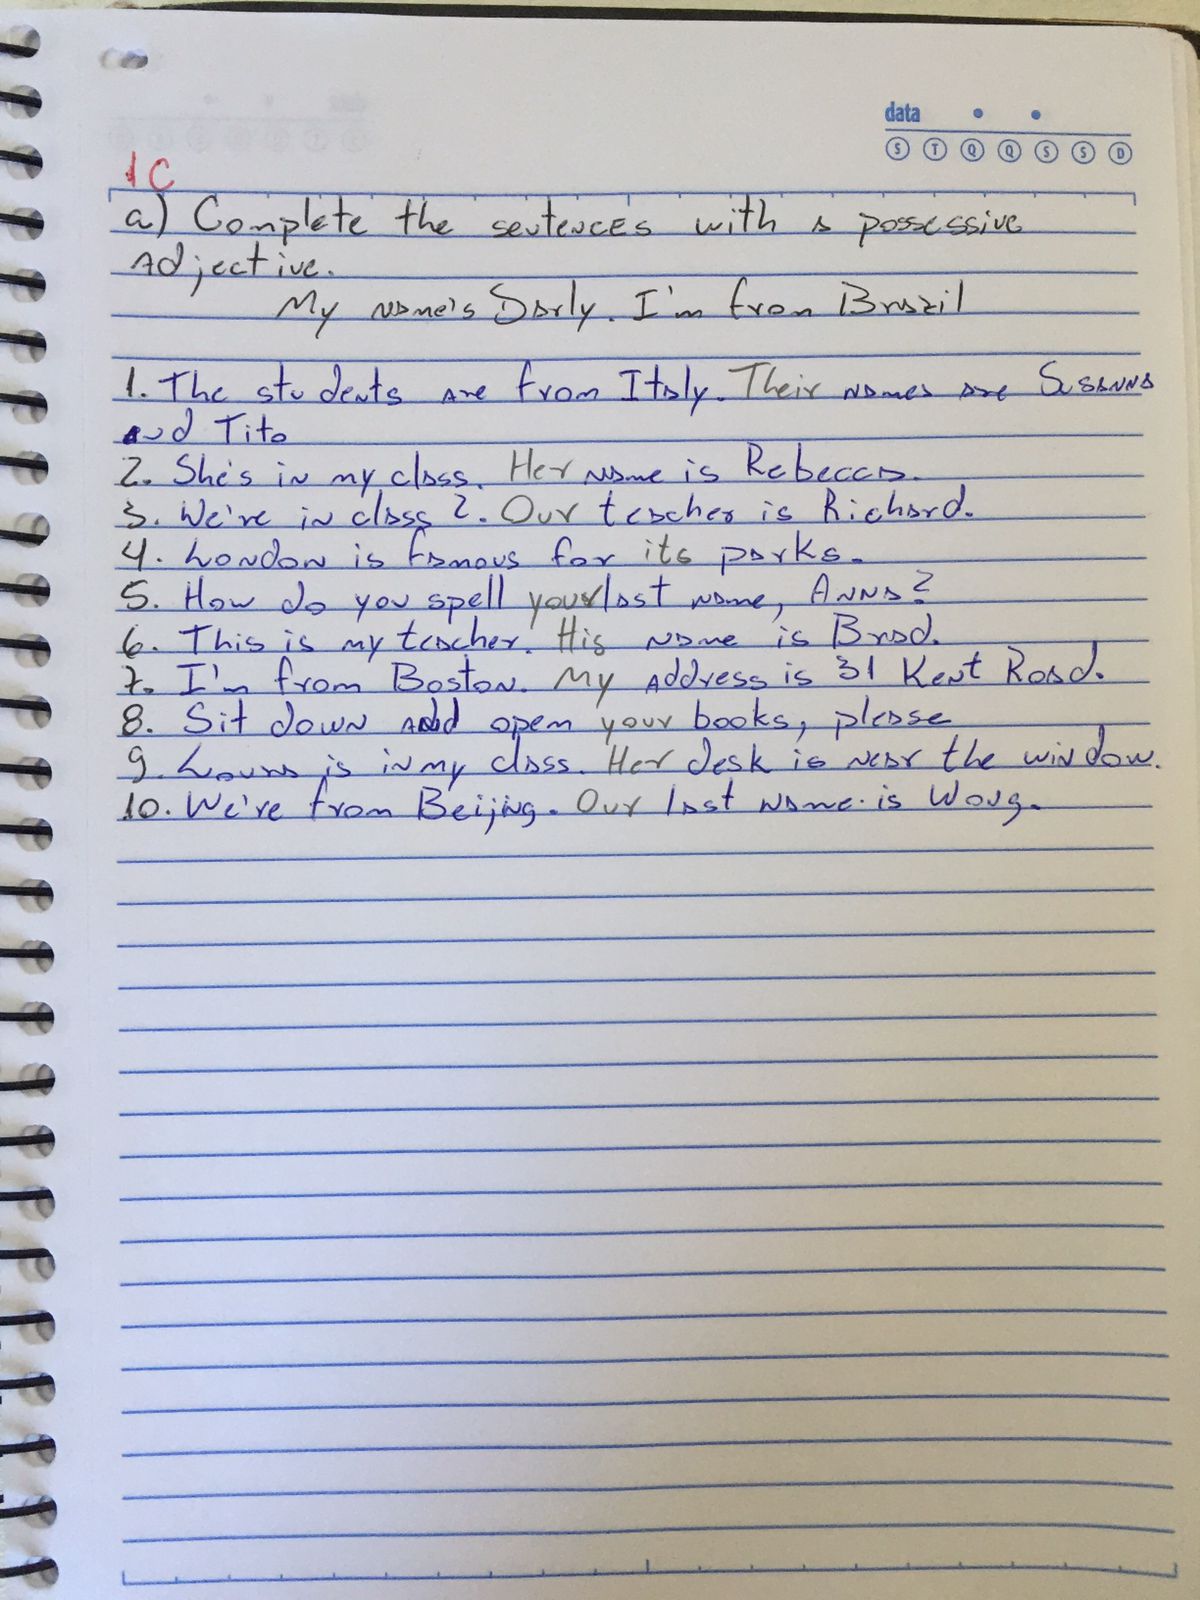 data
S T Q Q S S D
1C
a) Complete the sentences with a possessive
Adjective.
My name's Darly. I'm from Brazil
1. The students are from Italy. Their names are Susanna
and Tito
2. She's in my class. Her name is Rebecca.
3. We're in class 2. Our teacher is Richard.
4. London is famous for its parks.
5. How do you spell your last name, Anna?
6. This is my teacher. His name is Brad.
7. I'm from Boston. My Address is 31 Kent Road.
8. Sit down and open your books, please
9. Laura is in my class. Her desk is near the window.
10. We're from Beijing. Our last name is Wong.